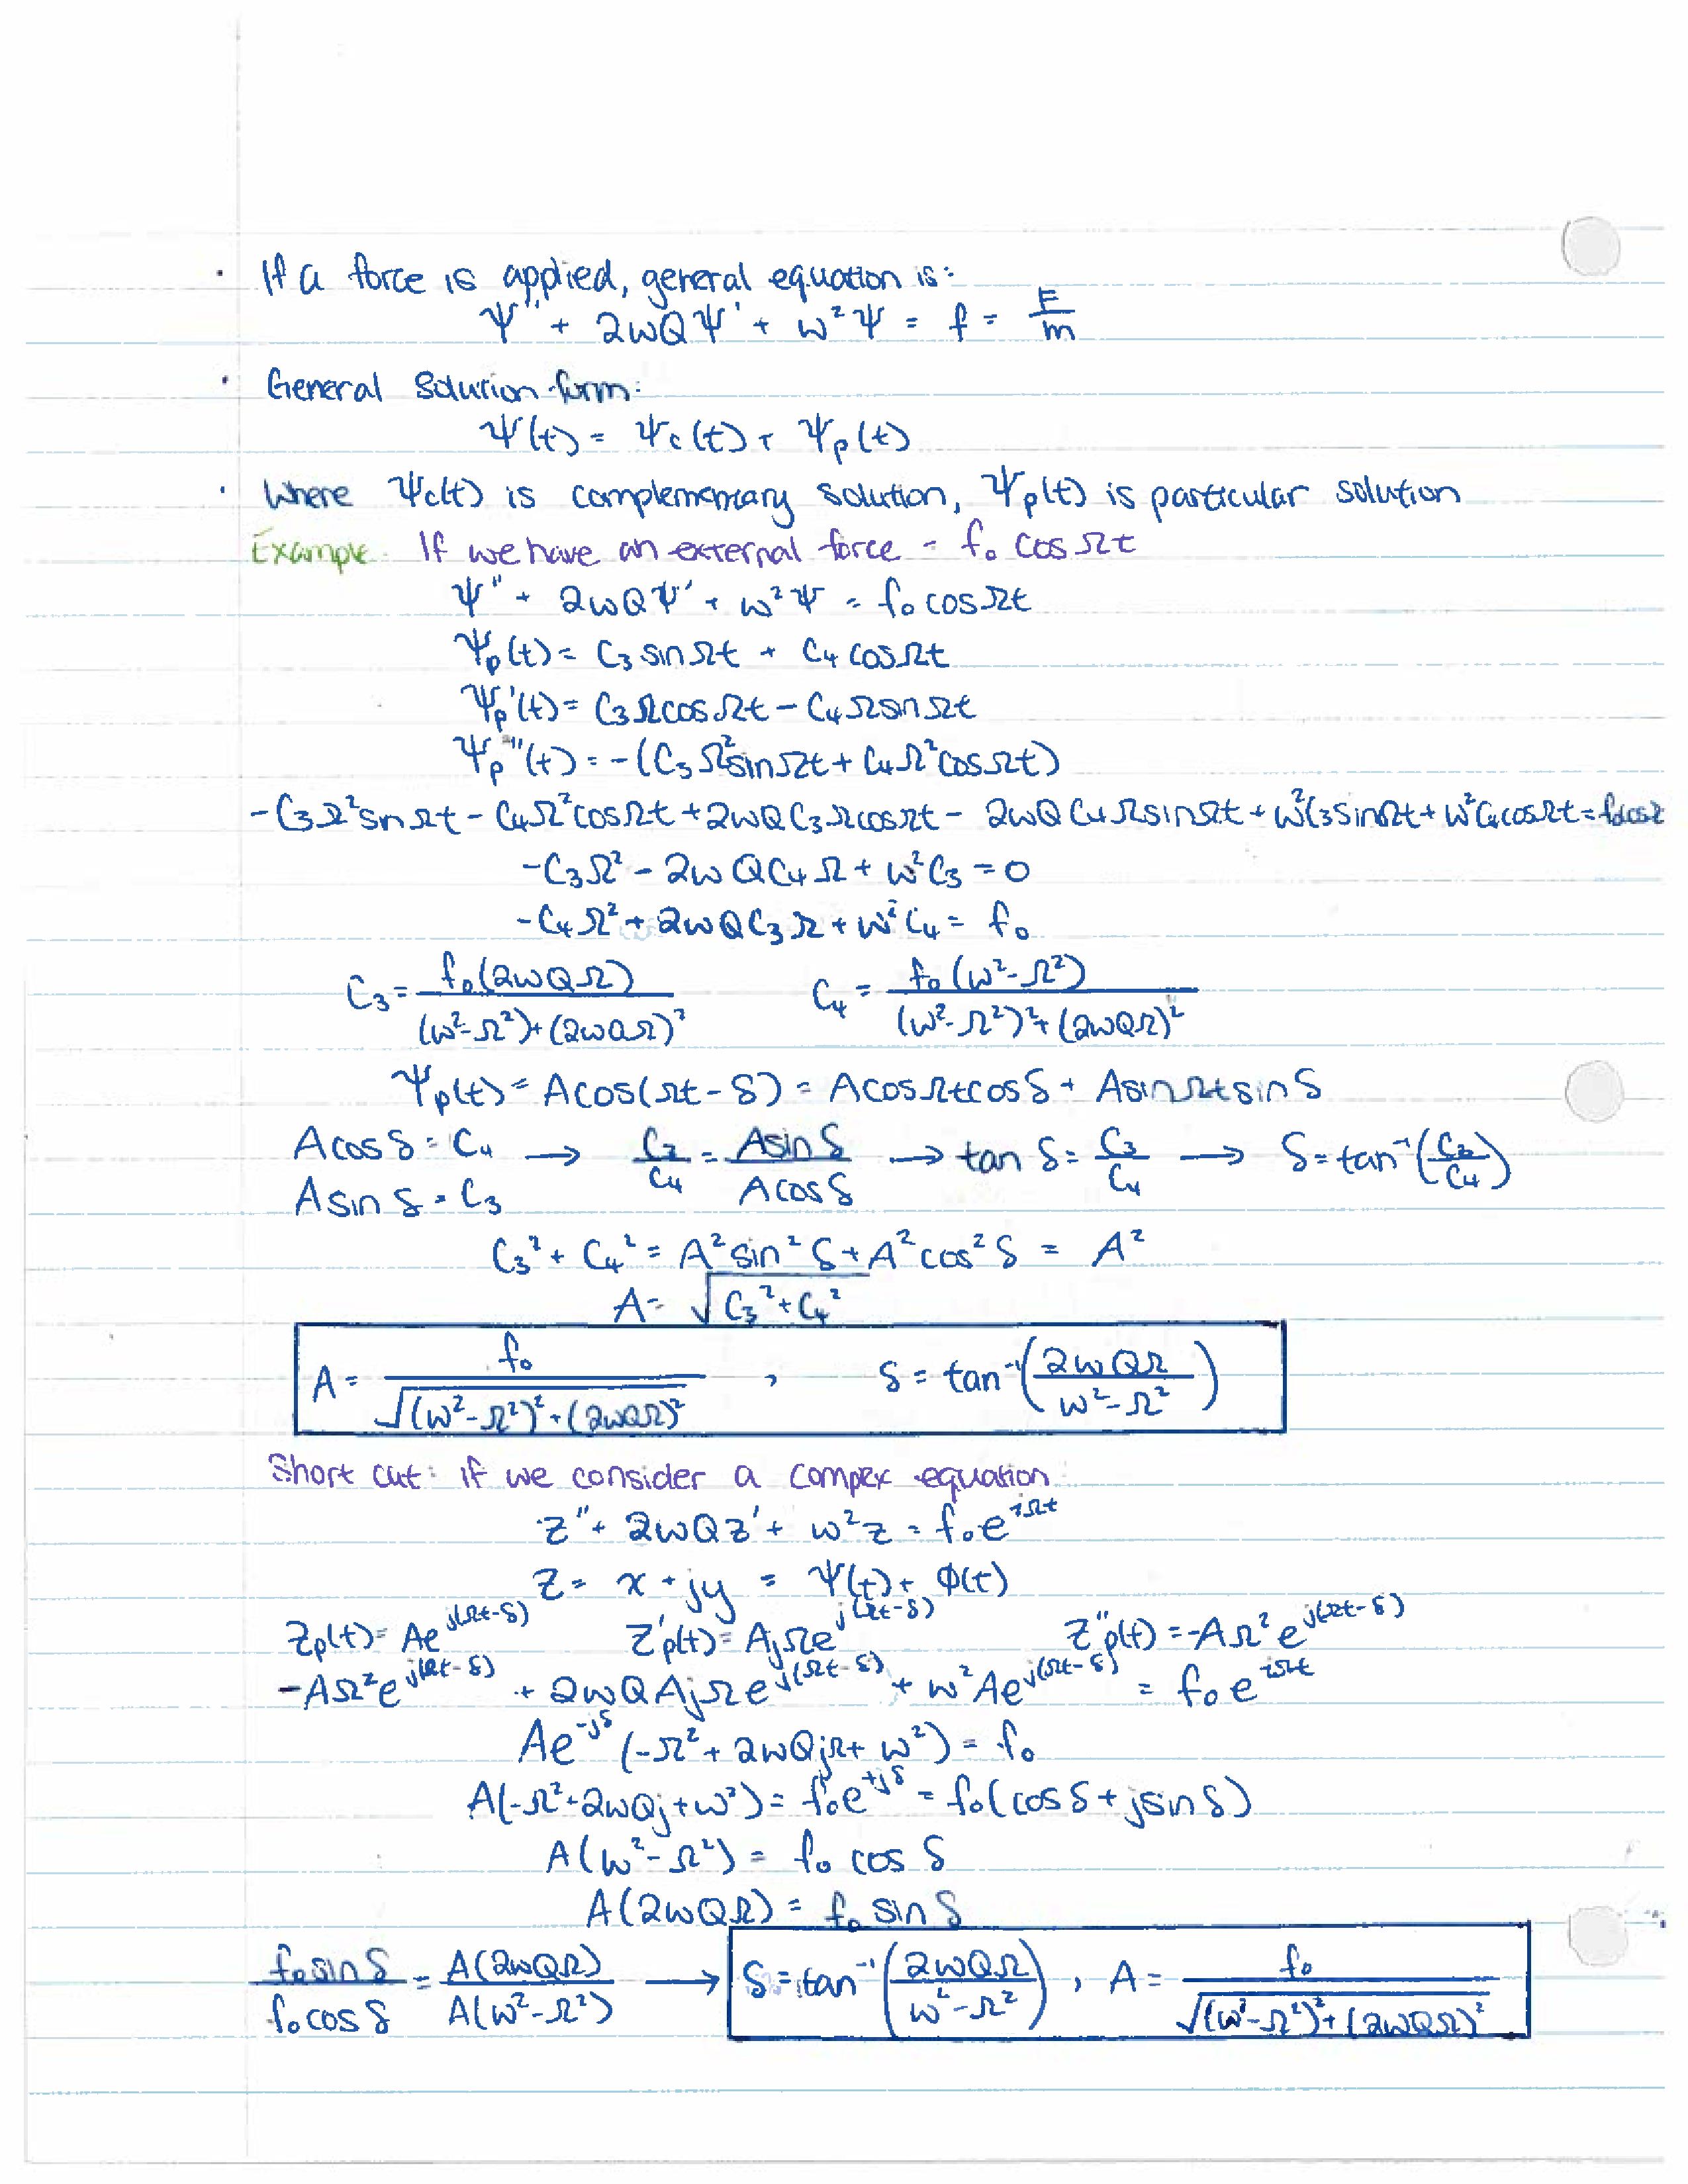 · If a force is applied, general equation is:
Ψ'' + 2ωQΨ' + ω²Ψ = f = F/m
· General Solution form:
Ψ(t) = Ψc(t) + Ψp(t)
· Where Ψc(t) is complementary solution, Ψp(t) is particular solution
Example: If we have an external force = f₀ cos Ωt
Ψ'' + 2ωQΨ' + ω²Ψ = f₀ cos Ωt
Ψp(t) = C₃ sin Ωt + C₄ cos Ωt
Ψp'(t) = C₃Ω cos Ωt - C₄Ω sin Ωt
Ψp''(t) = -(C₃Ω² sin Ωt + C₄Ω² cos Ωt)
-C₃Ω² sin Ωt - C₄Ω² cos Ωt + 2ωQC₃Ω cos Ωt - 2ωQC₄Ω sin Ωt + ω²C₃ sin Ωt + ω²C₄ cos Ωt = f₀cosΩ
-C₃Ω² - 2ωQC₄Ω + ω²C₃ = 0
-C₄Ω² + 2ωQC₃Ω + ω²C₄ = f₀
C₃ = f₀(2ωQΩ) / (ω²-Ω²)+(2ωQΩ)² C₄ = f₀(ω²-Ω²) / (ω²-Ω²)²+(2ωQΩ)²
Ψp(t) = A cos(Ωt - δ) = A cos Ωt cos δ + A sin Ωt sin δ
A cos δ = C₄ → C₃/C₄ = A sin δ / A cos δ → tan δ = C₃/C₄ → δ = tan⁻¹(C₃/C₄)
A sin δ = C₃
C₃² + C₄² = A² sin² δ + A² cos² δ = A²
A = √(C₃² + C₄²)
A = f₀ / √((ω²-Ω²)²+(2ωQΩ)²) , δ = tan⁻¹(2ωQΩ / ω²-Ω²)
Short cut: if we consider a compex equation
z'' + 2ωQz' + ω²z = f₀e^(iΩt)
z = x + jy = Ψ(t) + φ(t)
Zp(t) = Ae^(j(Ωt-δ)) Z'p(t) = AjΩe^(j(Ωt-δ)) Z''p(t) = -AΩ²e^(j(Ωt-δ))
-AΩ²e^(j(Ωt-δ)) + 2ωQAjΩe^(j(Ωt-δ)) + ω²Ae^(j(Ωt-δ)) = f₀e^(iΩt)
Ae^(-jδ) (-Ω² + 2ωQjΩ + ω²) = f₀
A(-Ω² + 2ωQj + ω²) = f₀e^(+jδ) = f₀(cos δ + j sin δ)
A(ω² - Ω²) = f₀ cos δ
A(2ωQΩ) = f₀ sin δ
f₀ sin δ / f₀ cos δ = A(2ωQΩ) / A(ω²-Ω²) → δ = tan⁻¹(2ωQΩ / ω²-Ω²) , A = f₀ / √((ω²-Ω²)²+(2ωQΩ)²)